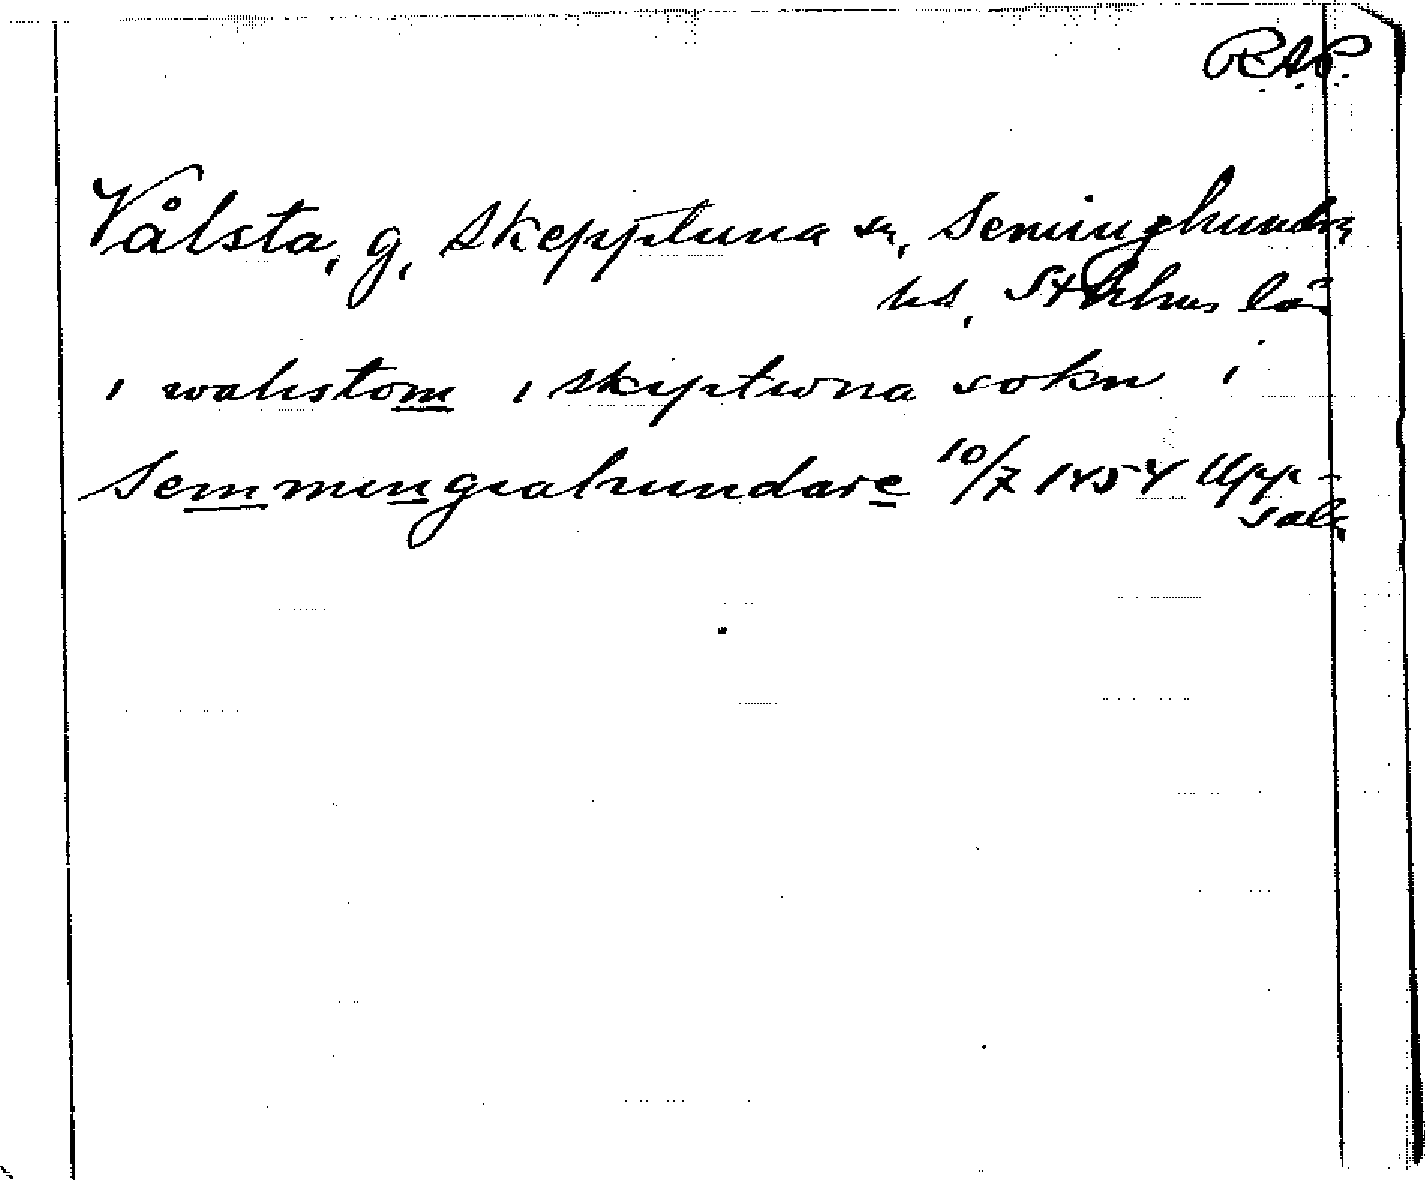 R.A.P.
Vålsta, g, Skepptuna sn, Seminghundra
hd, Sthlms län
i walistom i skiptwna sokn i
Semmingiahundare 10/7 1454 Upp-
sala